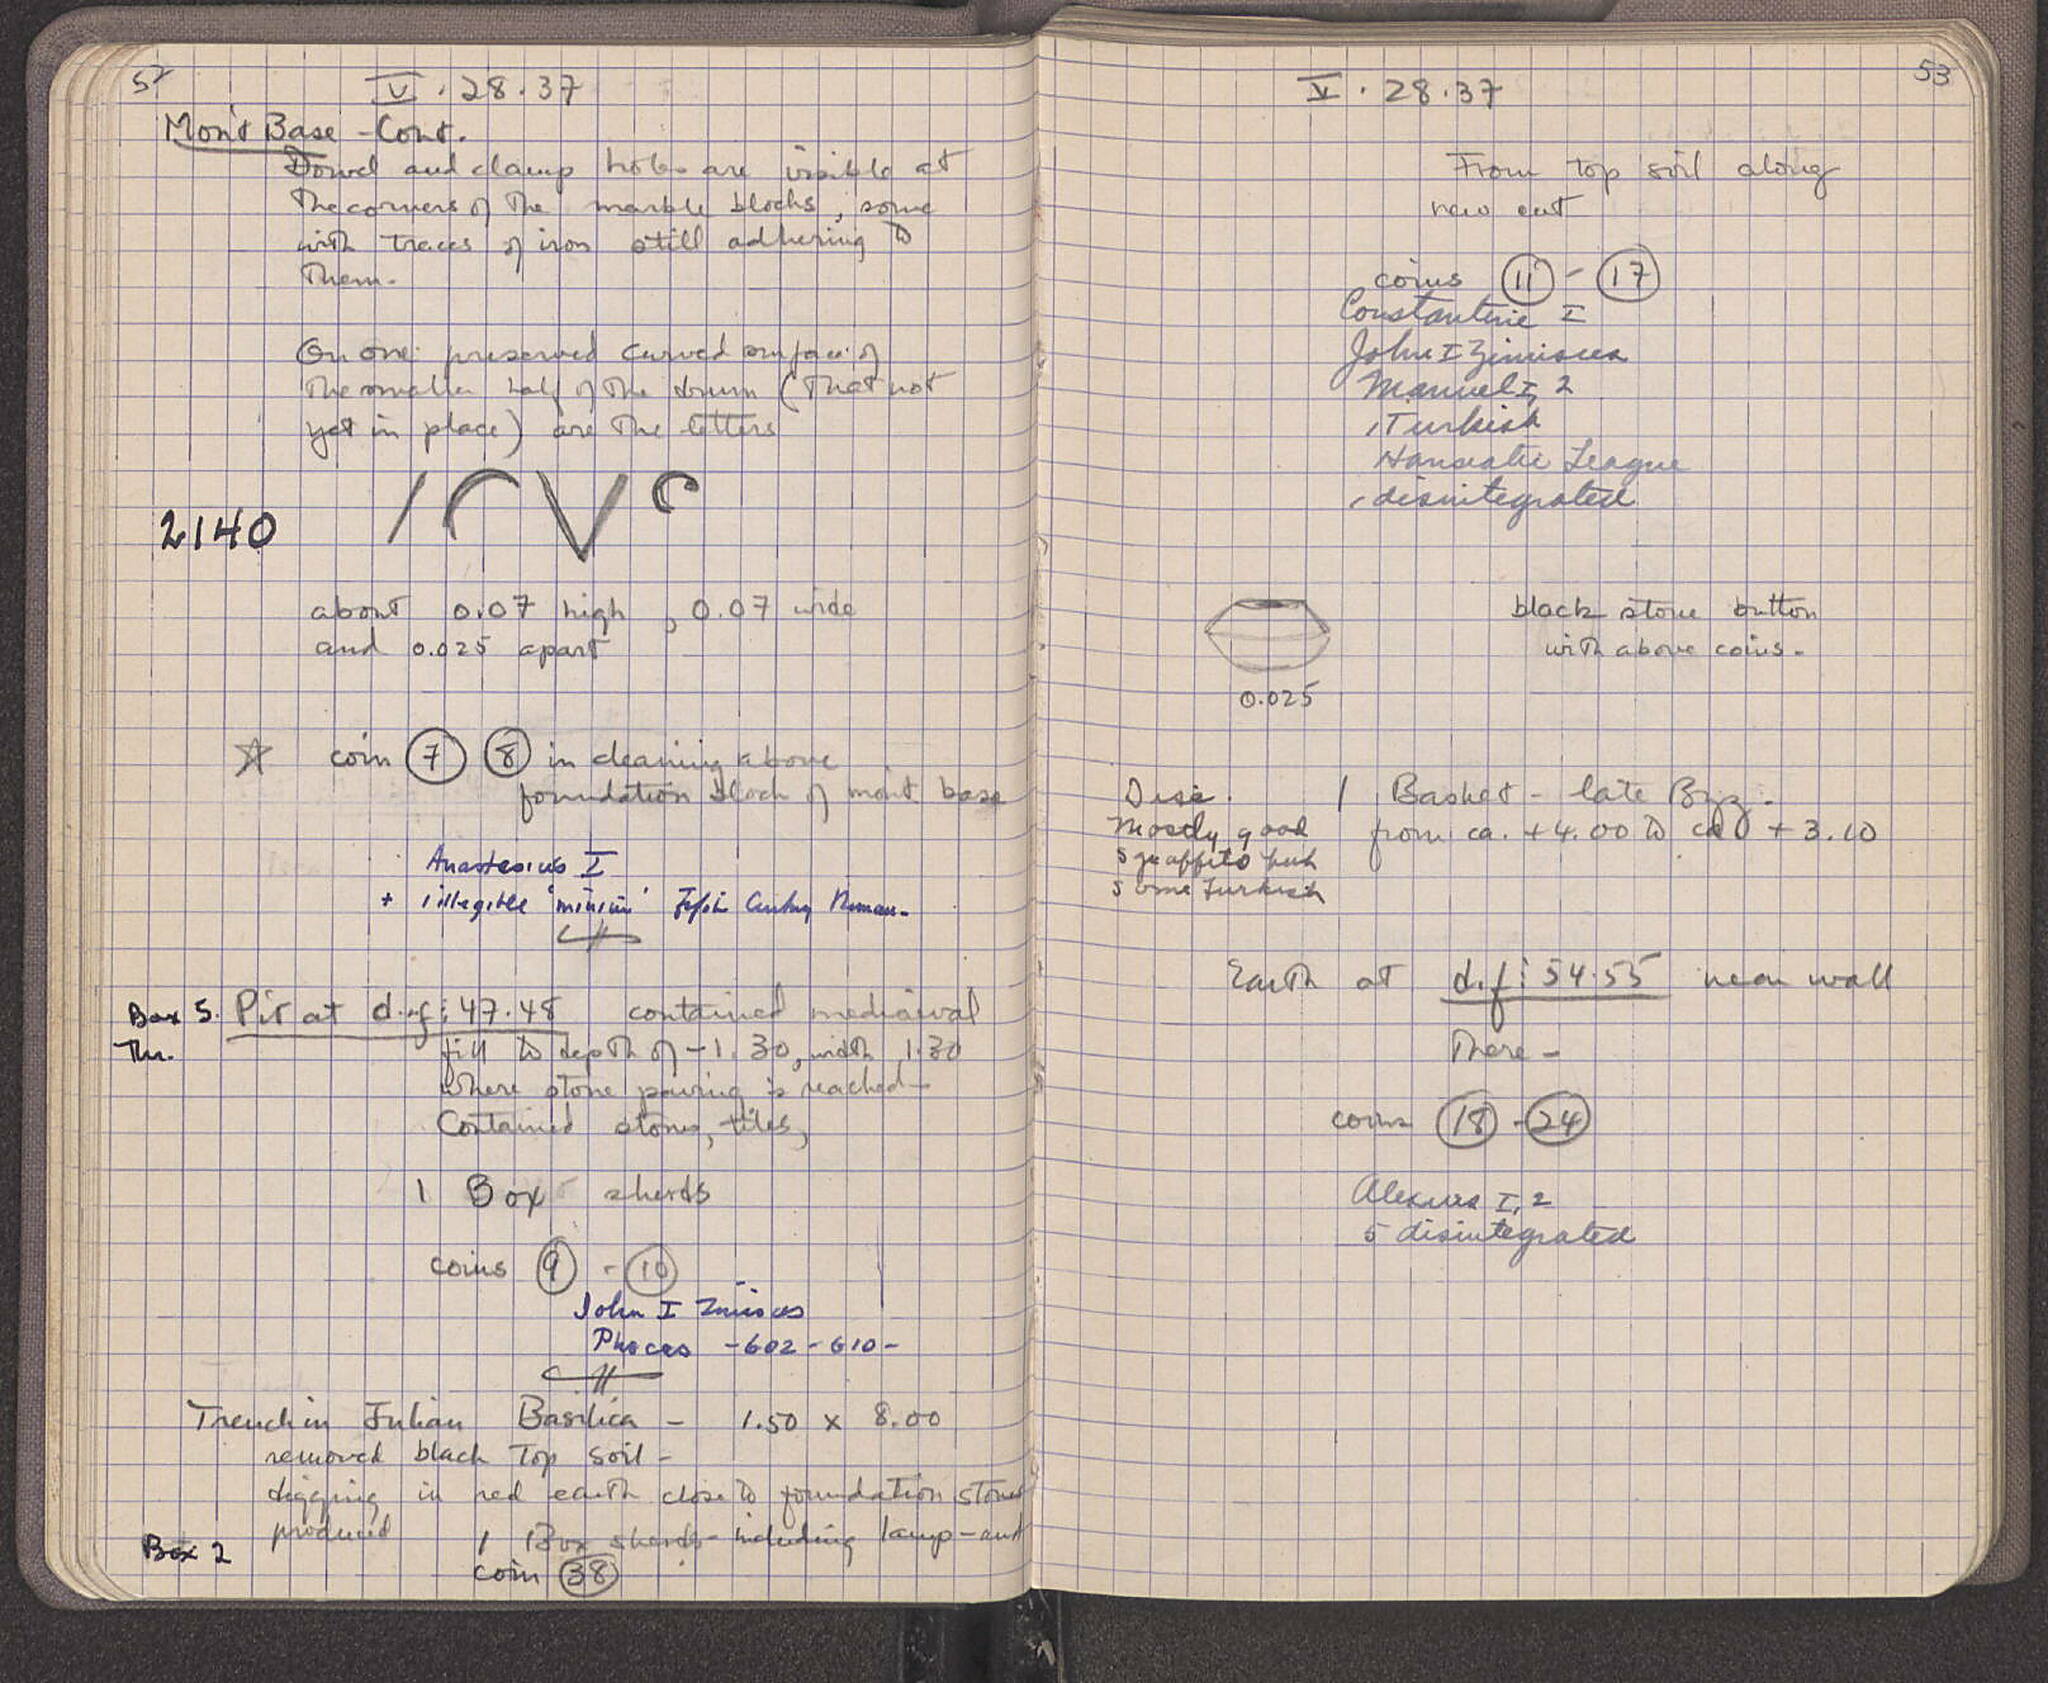 52
V . 28 . 37
Mon't Base - Cont.
Dowel and clamp holes are visible at
the corners of the marble blocks, some
with traces of iron still adhering to
them.
On one preserved curved surface of
the smaller half of the drum (that not
yet in place) are the letters
2140
about 0.07 high, 0.07 wide
and 0.025 apart
coin 7 8 in cleaning above
foundation block of mon't base
Anastasius I
+ illegible 'minim' Fifth Century Roman.
Box 5. Pit at d-f:47.48 contained mediaeval
Thr.
fill to depth of -1.30, width 1.30
where stone paving is reached -
Contained stones, tiles,
1 Box sherds
coins 9 - 10
John I Zimisces
Phocas - 602 - 610 -
Trench in Julian Basilica - 1.50 x 8.00
removed black top soil -
digging in red earth close to foundation stones
produced 1 Box sherds - including lamp - and
Box 2
coin 38
53
V . 28 . 37
From top soil along
new cut
coins 11 - 17
Constantine I
John I Zimisces
Manuel I, 2
1 Turkish
Hanseatic League
1 disintegrated
black stone button
with above coins.
0.025
Disc. 1 Basket - late Byz.
Mostly good from ca. +4.00 to ca +3.10
sgraffito but
some Turkish
Earth at d.f:54.55 near wall
There -
coins 18 - 24
Alexius I, 2
5 disintegrated